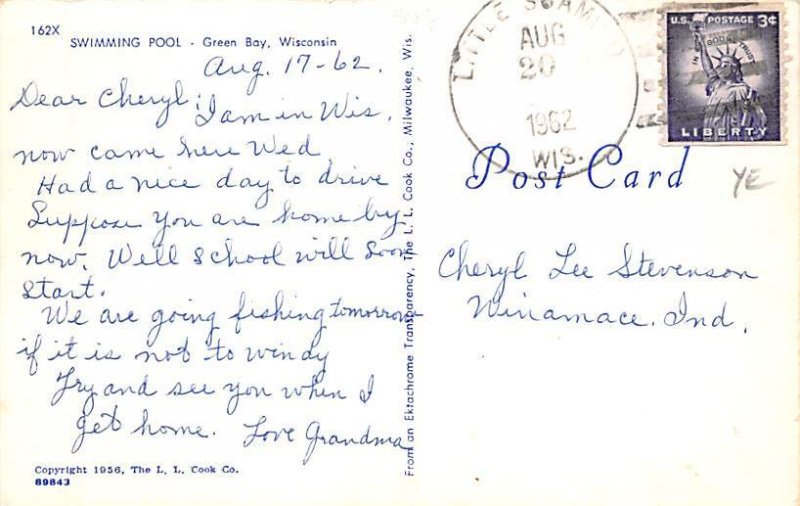 162X
SWIMMING POOL - Green Bay, Wisconsin
Aug. 17-62.
Dear Cheryl; I am in Wis.
now came here Wed
Had a nice day to drive
Suppose you are home by
now. Well school will soon
start.
We are going fishing tomorrow
if it is not to windy
Try and see you when I
get home. Love Grandma
Copyright 1956, The L. L. Cook Co.
89843
From an Ektachrome Transparency, The L. L. Cook Co., Milwaukee, Wis.
LITTLE SUAMICO
AUG
20
1962
WIS.
U.S. POSTAGE 3¢
IN GOD WE TRUST
LIBERTY
Post Card
YE
Cheryl Lee Stevenson
Winamace, Ind.